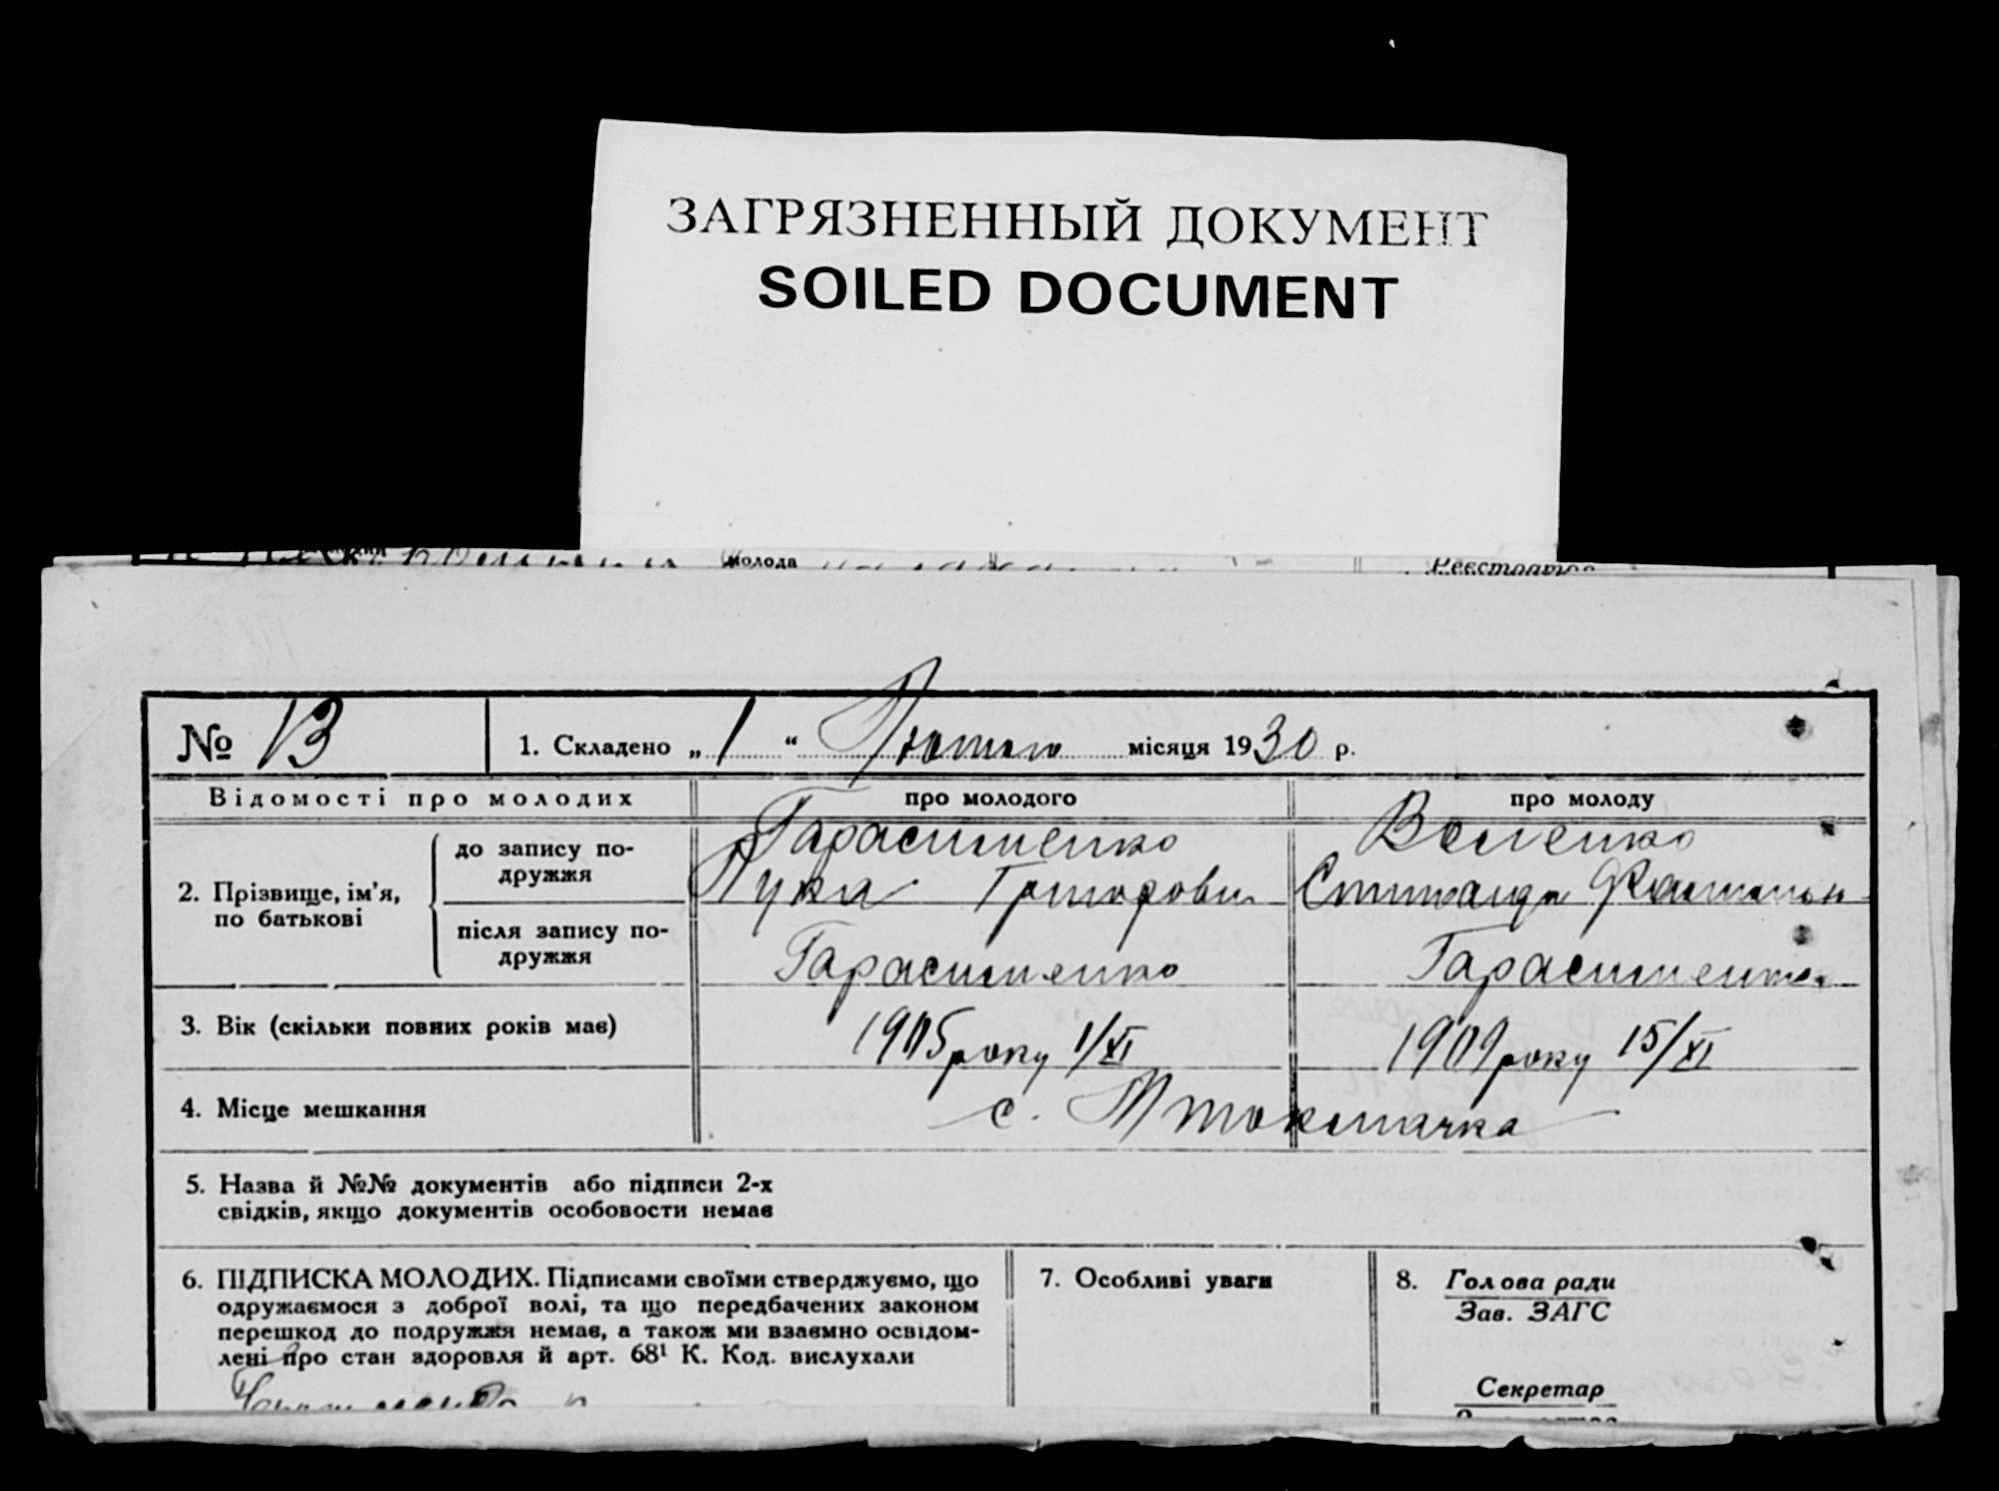 ЗАГРЯЗНЕННЫЙ ДОКУМЕНТ
SOILED DOCUMENT
молода
Реєстратор
№ 13
1. Складено „ 1 “ Лютого місяця 1930 р.
Відомості про молодих
про молодого
про молоду
2. Прізвище, ім'я, по батькові
до запису по-
дружжя
Гарасименко
Лука Григорович
після запису по-
дружжя
Гарасименко
Гарасименко
3. Вік (скільки повних років має)
1905 року 1/XI
1909 року 15/XI
4. Місце мешкання
с.
5. Назва й №№ документів або підписи 2-х
свідків, якщо документів особовости немає
6. ПІДПИСКА МОЛОДИХ. Підписами своїми стверджуємо, що
одружаємося з доброї волі, та що передбачених законом
перешкод до подружжя немає, а також ми взаємно освідом-
лені про стан здоровля й арт. 68¹ К. Код. вислухали
7. Особливі уваги
8. Голова ради
Зав. ЗАГС
Секретар